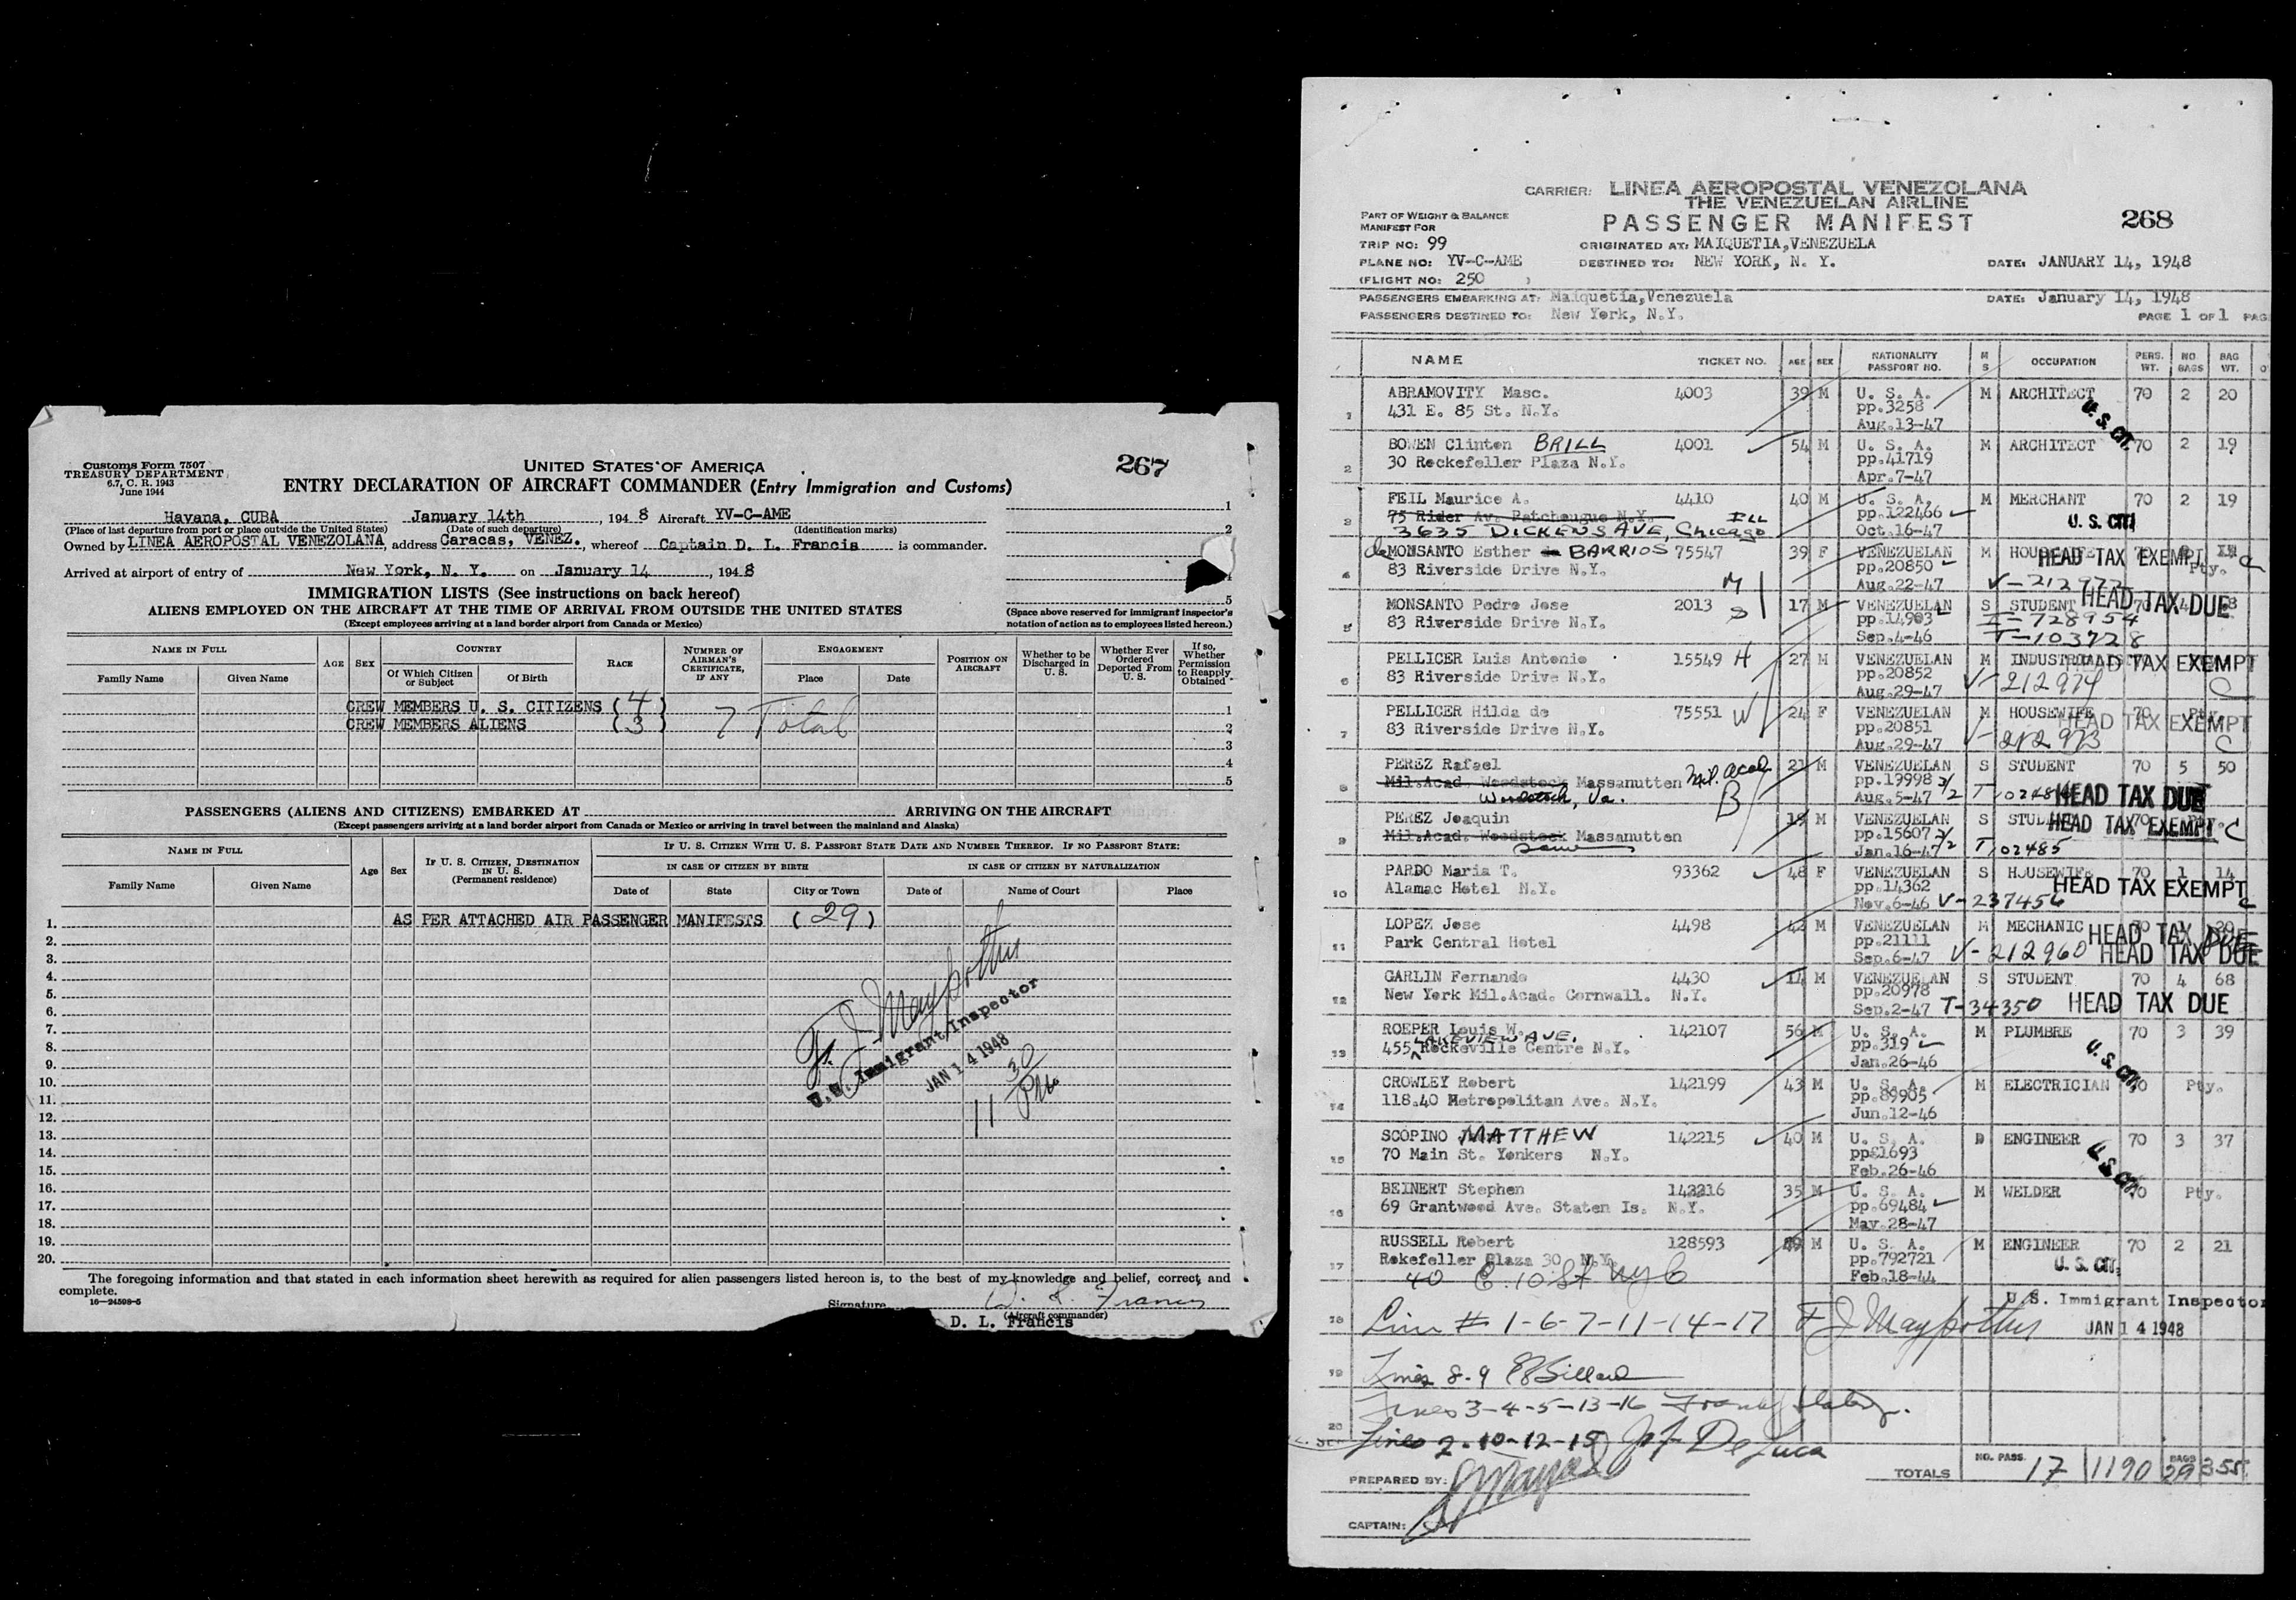 Customs Form 7507
TREASURY DEPARTMENT
6.7, C. R. 1943
June 1944
UNITED STATES OF AMERICA
267
ENTRY DECLARATION OF AIRCRAFT COMMANDER (Entry Immigration and Customs)
Havana, CUBA January 14th, 1948 Aircraft YV-C-AME
(Place of last departure from port or place outside the United States) (Date of such departure) (Identification marks)
Owned by LINEA AEROPOSTAL VENEZOLANA, address Caracas, VENEZ., whereof Captain D. L. Francis is commander.
Arrived at airport of entry of New York, N. Y. on January 14, 1948
IMMIGRATION LISTS (See instructions on back hereof)
ALIENS EMPLOYED ON THE AIRCRAFT AT THE TIME OF ARRIVAL FROM OUTSIDE THE UNITED STATES
(Except employees arriving at a land border airport from Canada or Mexico)
1
2
4
5
(Space above reserved for immigrant inspector's
notation of action as to employees listed hereon.)
NAME IN FULL AGE SEX COUNTRY RACE NUMBER OF AIRMAN'S CERTIFICATE, IF ANY ENGAGEMENT POSITION ON AIRCRAFT Whether to be Discharged in U. S. Whether Ever Ordered Deported From U. S. If so, Whether Permission to Reapply Obtained
Family Name Given Name Of Which Citizen or Subject Of Birth Place Date
CREW MEMBERS U. S. CITIZENS (4) 1
CREW MEMBERS ALIENS (3) 7 Total 2
3
4
5
PASSENGERS (ALIENS AND CITIZENS) EMBARKED AT ARRIVING ON THE AIRCRAFT
(Except passengers arriving at a land border airport from Canada or Mexico or arriving in travel between the mainland and Alaska)
NAME IN FULL Age Sex IF U. S. CITIZEN, DESTINATION IN U. S. (Permanent residence) IF U. S. CITIZEN WITH U. S. PASSPORT STATE DATE AND NUMBER THEREOF. IF NO PASSPORT STATE:
IN CASE OF CITIZEN BY BIRTH IN CASE OF CITIZEN BY NATURALIZATION
Family Name Given Name Date of State City or Town Date of Name of Court Place
1. AS PER ATTACHED AIR PASSENGER MANIFESTS (29)
2.
3.
4.
5.
6.
7.
8.
9.
10.
11.
12.
13.
14.
15.
16.
17.
18.
19.
20.
U. S. Immigrant Inspector
JAN 14 1948
11 30 PM
The foregoing information and that stated in each information sheet herewith as required for alien passengers listed hereon is, to the best of my knowledge and belief, correct and
complete.
16-24598-5
Signature D. L. Francis
(Aircraft commander)
D. L. Francis
CARRIER: LINEA AEROPOSTAL VENEZOLANA
THE VENEZUELAN AIRLINE
PART OF WEIGHT & BALANCE
MANIFEST FOR
PASSENGER MANIFEST
268
TRIP NO: 99 ORIGINATED AT: MAIQUETIA, VENEZUELA
PLANE NO: YV-C-AME DESTINED TO: NEW YORK, N. Y. DATE: JANUARY 14, 1948
(FLIGHT NO: 250 )
PASSENGERS EMBARKING AT: Maiquetia, Venezuela DATE: January 14, 1948
PASSENGERS DESTINED TO: New York, N.Y. PAGE 1 OF 1 PAG
NAME TICKET NO. AGE SEX NATIONALITY PASSPORT NO. M S OCCUPATION PERS. WT. NO BAGS BAG WT.
ABRAMOVITY Masc. 4003 39 M U. S. A. M ARCHITECT 70 2 20
1 431 E. 85 St. N.Y. pp.3258
Aug.13-47 U. S. CIT.
BOWEN Clinton BRILL 4001 54 M U. S. A. M ARCHITECT 70 2 19
2 30 Rockefeller Plaza N.Y. pp.41719
Apr.7-47
FEIL Maurice A. 4410 40 M U. S. A. M MERCHANT 70 2 19
3 75 Rider Av. Patchougue N.Y. ILL pp.122466 U. S. CIT.
3635 DICKENS AVE, Chicago Oct.16-47
de MONSANTO Esther BARRIOS 75547 39 F VENEZUELAN M HOUSEWIFE Pty. HEAD TAX EXEMPT C
4 83 Riverside Drive N.Y. pp.20850
Aug.22-47 V-212972
MONSANTO Pedro Jose 2013 M S 17 M VENEZUELAN S STUDENT HEAD TAX DUE
5 83 Riverside Drive N.Y. pp.14903 I-728954
Sep.4-46 T-103728
PELLICER Luis Antonio 15549 H 27 M VENEZUELAN M HEAD TAX EXEMPT
6 83 Riverside Drive N.Y. pp.20852 V-212974
Aug.29-47 C
PELLICER Hilda de 75551 W 24 F VENEZUELAN M HOUSEWIFE 70 Pty. HEAD TAX EXEMPT
7 83 Riverside Drive N.Y. pp.20851 V-212973
Aug.29-47 C
PEREZ Rafael 21 M VENEZUELAN S STUDENT 70 5 50
8 Mil.Acad. Woodstock Massanutten Mil. Acad. pp.19998
Woodstock, Va. B Aug.5-47 HEAD TAX DUE
PEREZ Joaquin 19 M VENEZUELAN S 70 HEAD TAX EXEMPT C
9 Mil.Acad. Woodstock Massanutten pp.15607
Same Jan.16-47 T102485
PARDO Maria T. 93362 48 F VENEZUELAN S HOUSEWIFE 70 1 14
10 Alamac Hotel N.Y. pp.14362 HEAD TAX EXEMPT
Nov.6-46 V-237456 C
LOPEZ Jose 4498 42 M VENEZUELAN M MECHANIC 70 1 20 HEAD TAX DUE
11 Park Central Hotel pp.21111
Sep.6-47 V-212960 HEAD TAX DUE
GARLIN Fernando 4430 14 M VENEZUELAN S STUDENT 70 4 68
12 New York Mil.Acad. Cornwall. N.Y. pp.20978
Sep.2-47 T-34350 HEAD TAX DUE
ROEPER Louis W. 142107 56 M U. S. A. M PLUMBRE 70 3 39
LAKEVIEW AVE.
13 455 Rockeville Centre N.Y. pp.319
Jan.26-46 U. S. CIT.
CROWLEY Robert 142199 43 M U. S. A. M ELECTRICIAN 70 Pty.
14 118.40 Metropolitan Ave. N.Y. pp.89905
Jun.12-46
SCOPINO MATTHEW 142215 40 M U. S. A. D ENGINEER 70 3 37
15 70 Main St. Yonkers N.Y. pp21693
Feb.26-46 U. S. CIT.
BEINERT Stephen 142216 35 M U. S. A. M WELDER 70 Pty.
16 69 Grantwood Ave. Staten Is. N.Y. pp.69484
May.28-47
RUSSELL Robert 128593 M U. S. A. M ENGINEER 70 2 21
17 Rokefeller Plaza 30 N.Y. pp.792721 U. S. CIT.
40 E. 10 St NYC Feb.18-44
U. S. Immigrant Inspector
18 Line # 1-6-7-11-14-17 JAN 14 1948
19 Lines 8-9
Lines 3-4-5-13-16
20
Lines 2-10-12-15 De Luca
PREPARED BY:
TOTALS NO. PASS. 17 1190 BAGS 29 355
CAPTAIN: